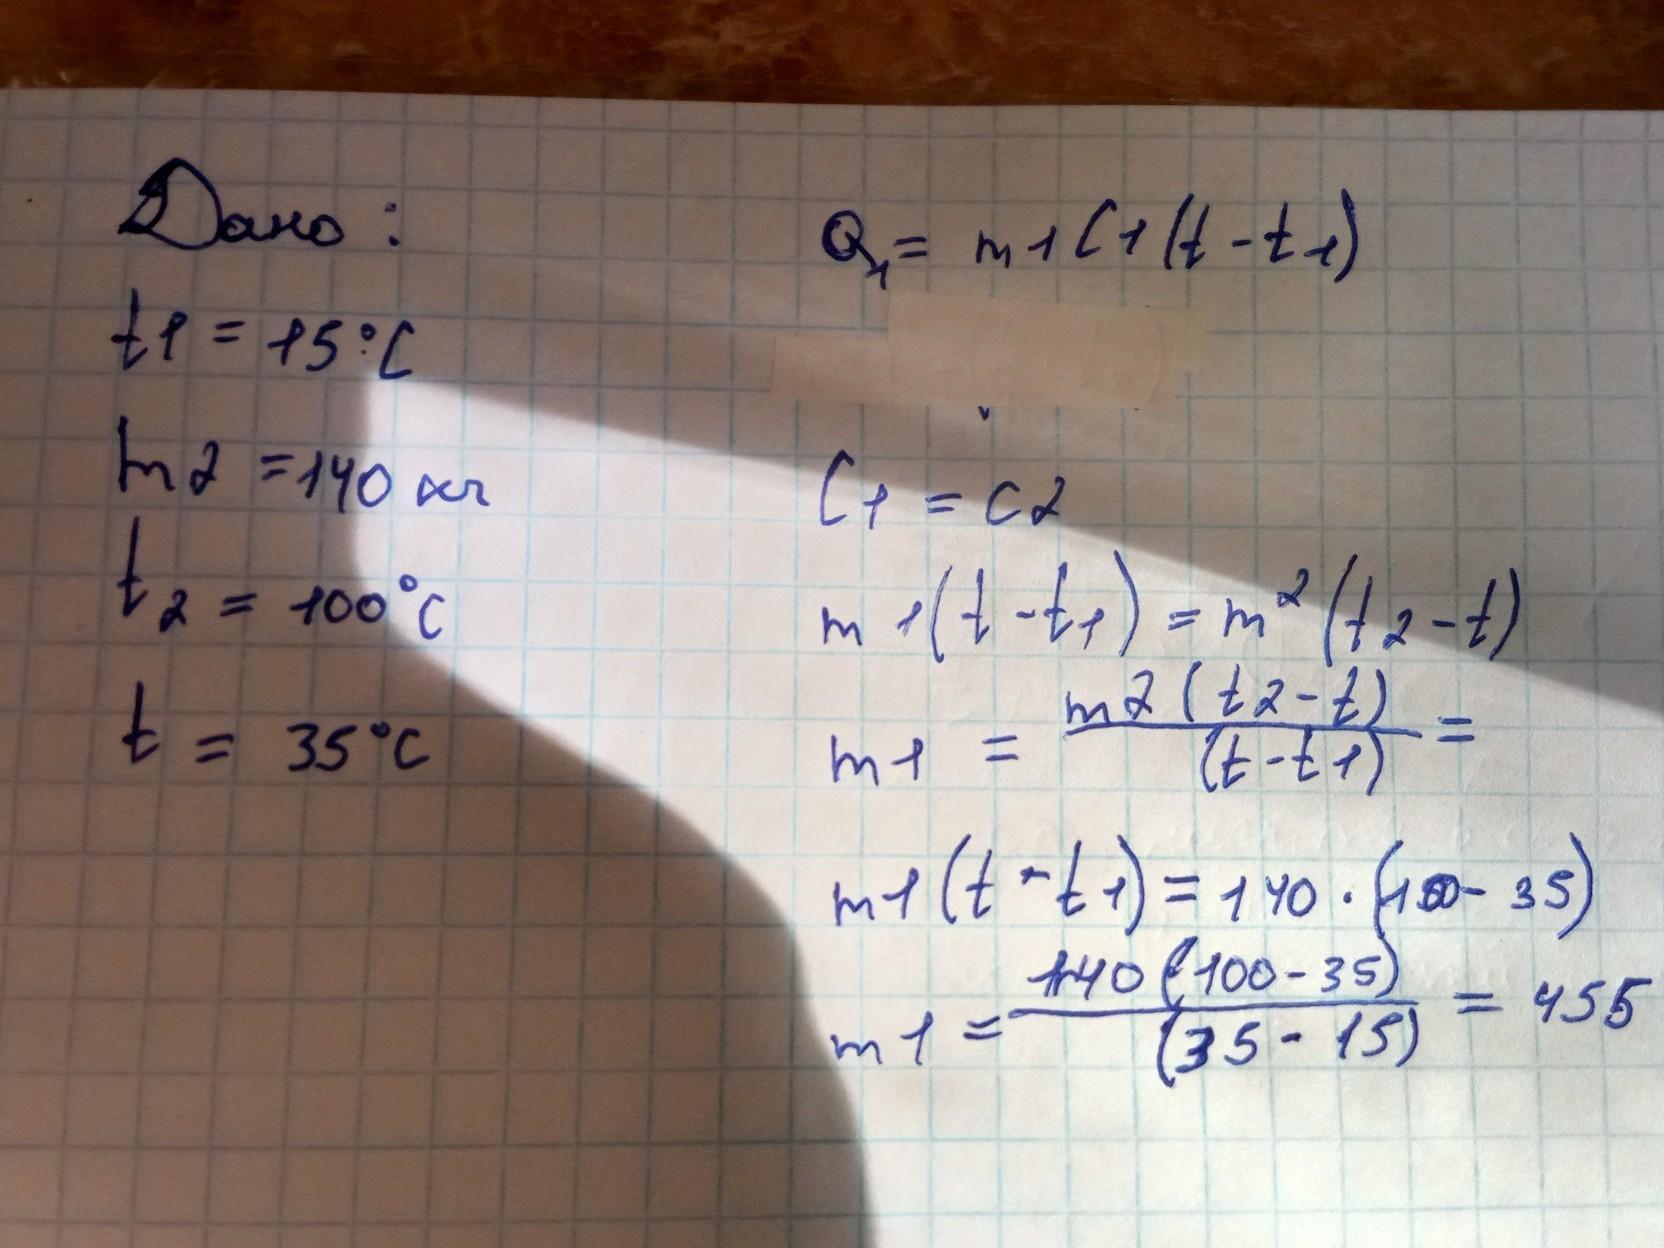 Дано:
t1 = 15°C
m2 = 140 кг
t2 = 100°C
t = 35°C
Q1 = m1C1(t-t1)
C1 = c2
m1(t-t1) = m²(t2-t)
m1 = m2(t2-t)/(t-t1) =
m1(t-t1) = 140·(100-35)
m1 = 140(100-35)/(35-15) = 455